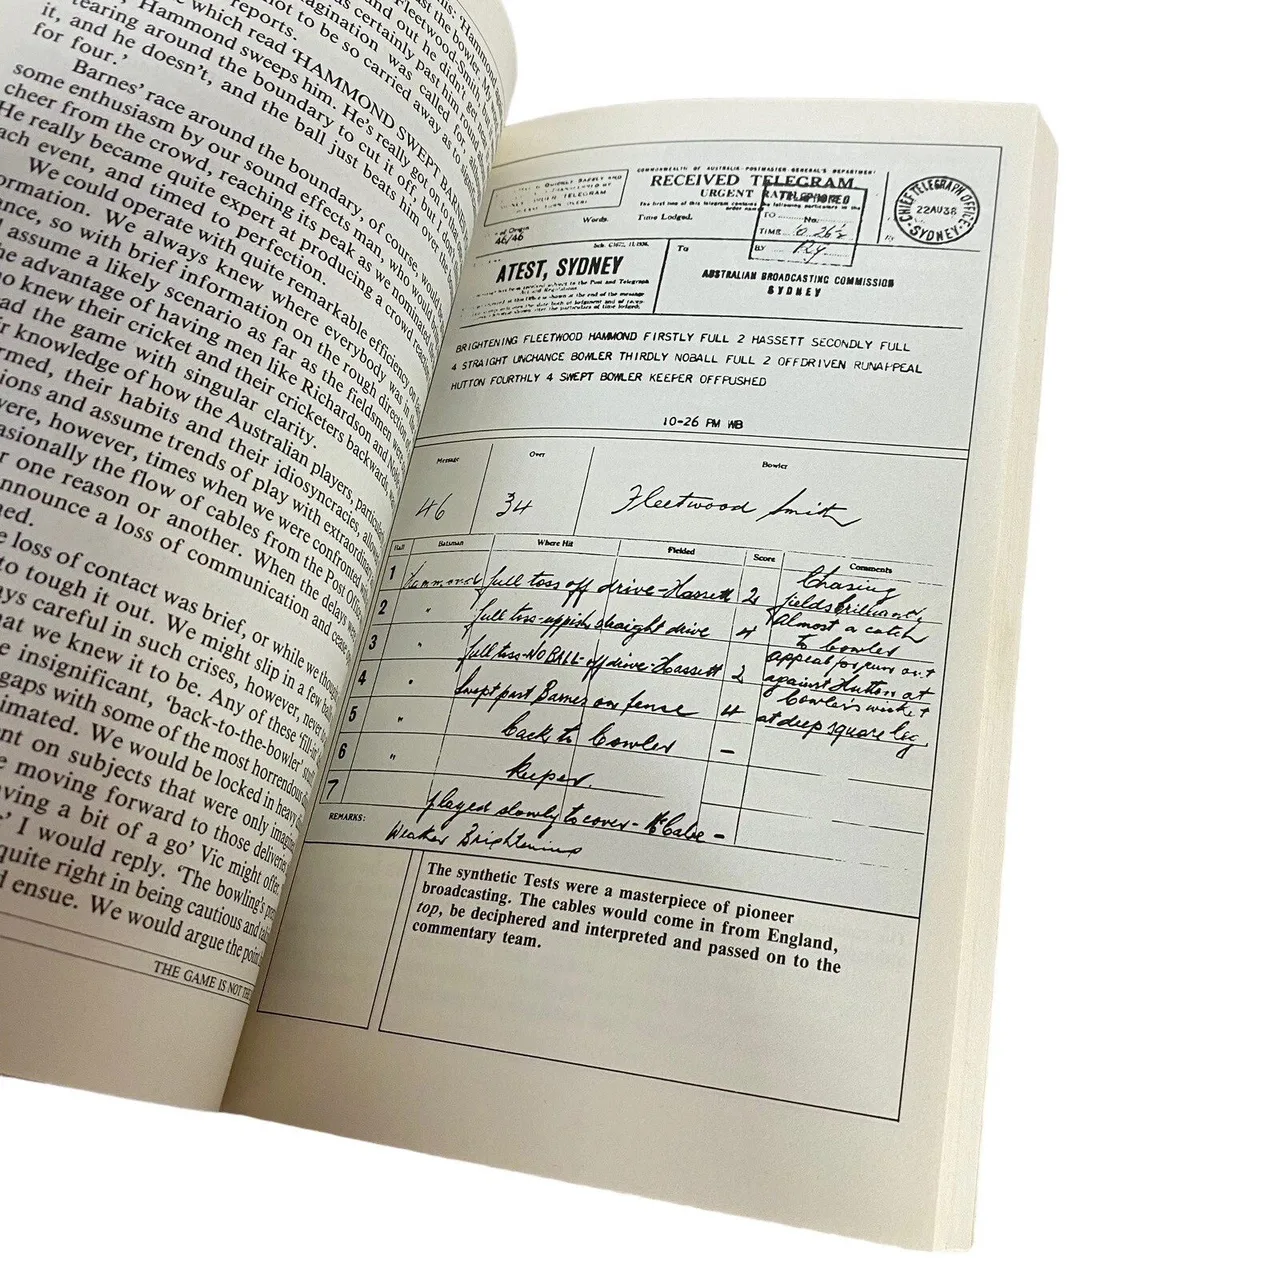 for four.'
Barnes' race around the boundary, of course, would
some enthusiasm by our sound effects man, who would
cheer from the crowd, reaching its peak as we nominated
He really became quite expert at producing a crowd
each event, and timed to perfection.
We could operate with quite remarkable efficiency on
We always knew where everybody was in the
so with brief information on the rough direction
assume a likely scenario as far as the fieldsmen
advantage of having men like Richardson and
knew their cricket and their cricketers backwards,
the game with singular clarity.
knowledge of how the Australian players,
their habits and their idiosyncracies,
and assume trends of play with
were, however, times when we were confronted
the flow of cables from the Post Office
one reason or another. When the delays were
announce a loss of communication and
loss of contact was brief, or while we thought
to tough it out. We might slip in a few
careful in such crises, however, never
that we knew it to be. Any of these 'fill-in'
insignificant, 'back-to-the-bowler'
gaps with some of the most horrendous
We would be locked in heavy
on subjects that were only
moving forward to those deliveries
having a bit of a go' Vic might offer.
I would reply. 'The bowling's
quite right in being cautious and
ensue. We would argue the point
THE GAME IS NOT THE
COMMONWEALTH OF AUSTRALIA POSTMASTER-GENERAL'S DEPARTMENT
RECEIVED TELEGRAM
URGENT RATE
TELEPHONED
TO No.
TIME
BY
Words. Time Lodged.
46/46
CHIEF TELEGRAPH OFFICE
22AU38
SYDNEY
Sch. C1672, 11.1936.
ATEST, SYDNEY
To
AUSTRALIAN BROADCASTING COMMISSION
SYDNEY
BRIGHTENING FLEETWOOD HAMMOND FIRSTLY FULL 2 HASSETT SECONDLY FULL
4 STRAIGHT UNCHANCE BOWLER THIRDLY NOBALL FULL 2 OFFDRIVEN RUNAPPEAL
HUTTON FOURTHLY 4 SWEPT BOWLER KEEPER OFFPUSHED
10-26 PM WB
Message Over Bowler
46 34 Fleetwood Smith
Ball Batsman Where Hit Fielded Score Comments
1 Hammond full toss off drive-Hassett 2 Chasing
fields brilliantly
2 " full toss-uppish straight drive 4 Almost a catch
to bowler
3 " full toss-NO BALL-off drive-Hassett 2 appeal for run out
against Hutton at
bowler's wicket
4 " swept past Barnes on fence 4 at deep square leg
5 " back to bowler -
6 " keeper
7 played slowly to cover - McCabe -
REMARKS: Weather Brightening
The synthetic Tests were a masterpiece of pioneer
broadcasting. The cables would come in from England,
top, be deciphered and interpreted and passed on to the
commentary team.